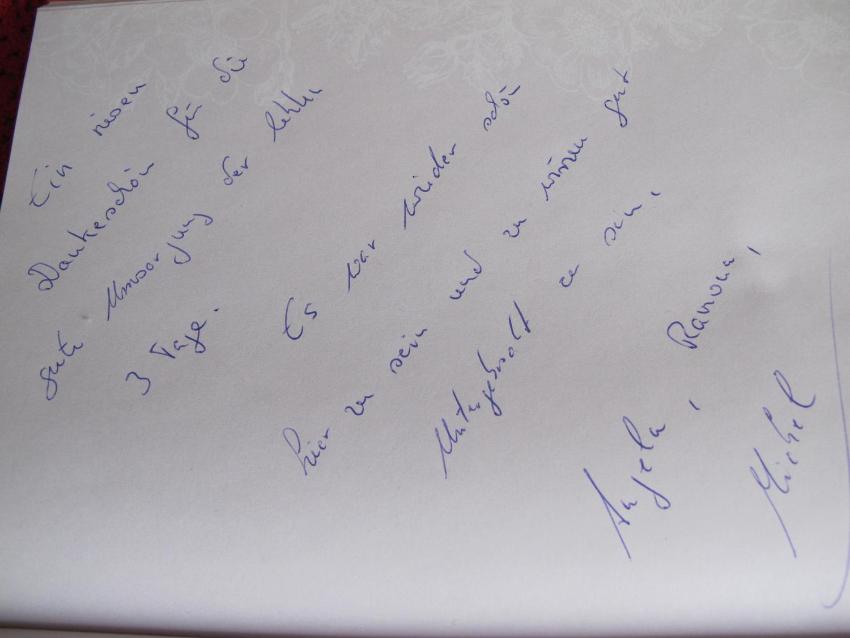 Ein riesen
Dankeschön für die
gute Umsorgung der letzten
3 Tage.
Es war wieder schön
hier zu sein und zu wissen gut
untergebracht zu sein,
Angela, Ramona,
Michel